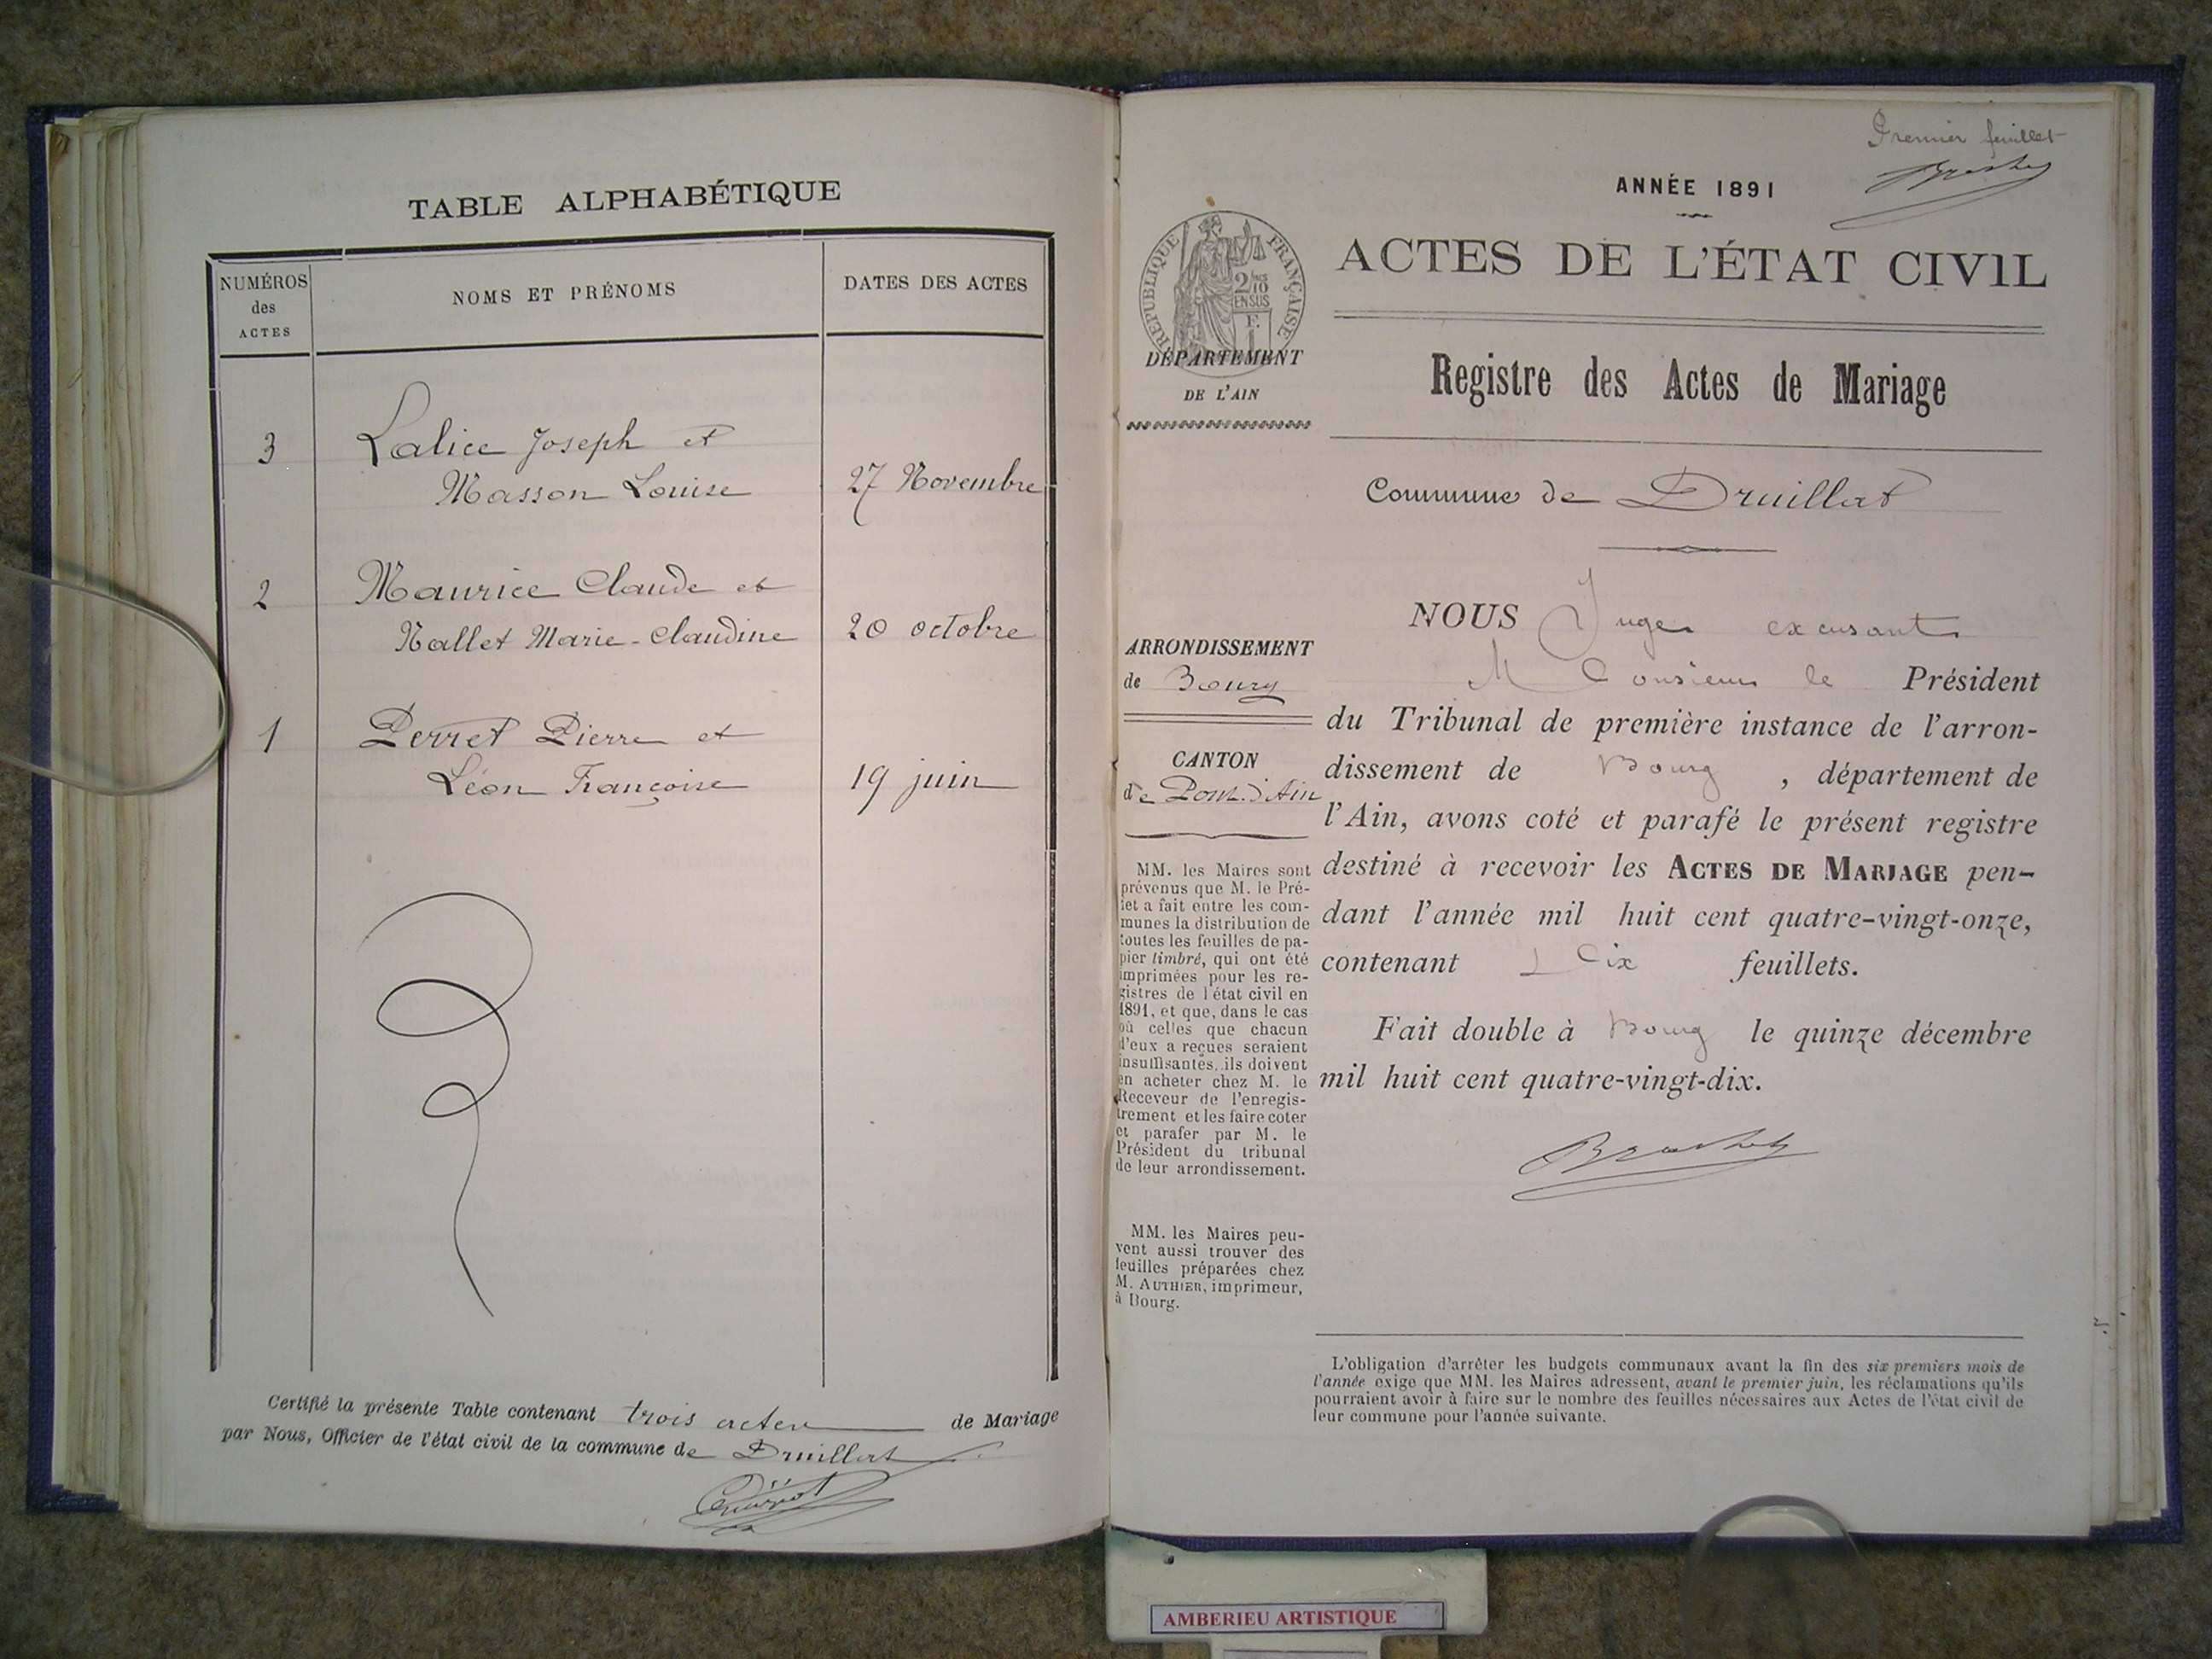 TABLE ALPHABÉTIQUE
NUMÉROS des ACTES
NOMS ET PRÉNOMS
DATES DES ACTES
3 Lalice Joseph et
Masson Louise 27 Novembre
2 Maurice Claude et
Nallet Marie-Claudine 20 octobre
1 Perret Pierre et
Léon Françoise 19 juin
Certifié la présente Table contenant trois actes de Mariage
par Nous, Officier de l'état civil de la commune de Druillat
Premier feuillet
ANNÉE 1891
RÉPUBLIQUE FRANÇAISE
2/10
EN SUS
DÉPARTEMENT
DE L'AIN
ACTES DE L'ÉTAT CIVIL
Registre des Actes de Mariage
Commune de Druillat
ARRONDISSEMENT
de Bourg
CANTON
de Pont-d'Ain
MM. les Maires sont
prévenus que M. le Pré-
fet a fait entre les com-
munes la distribution de
toutes les feuilles de pa-
pier timbré, qui ont été
imprimées pour les re-
gistres de l'état civil en
1891, et que, dans le cas
où celles que chacun
d'eux a reçues seraient
insuffisantes, ils doivent
en acheter chez M. le
Receveur de l'enregis-
trement et les faire coter
et parafer par M. le
Président du tribunal
de leur arrondissement.
MM. les Maires peu-
vent aussi trouver des
feuilles préparées chez
M. AUTHIER, imprimeur,
à Bourg.
NOUS Juge excusant
Monsieur le Président
du Tribunal de première instance de l'arron-
dissement de Bourg, département de
l'Ain, avons coté et parafé le présent registre
destiné à recevoir les ACTES DE MARIAGE pen-
dant l'année mil huit cent quatre-vingt-onze,
contenant feuillets.
Fait double à Bourg le quinze décembre
mil huit cent quatre-vingt-dix.
L'obligation d'arrêter les budgets communaux avant la fin des six premiers mois de
l'année exige que MM. les Maires adressent, avant le premier juin, les réclamations qu'ils
pourraient avoir à faire sur le nombre des feuilles nécessaires aux Actes de l'état civil de
leur commune pour l'année suivante.
AMBERIEU ARTISTIQUE